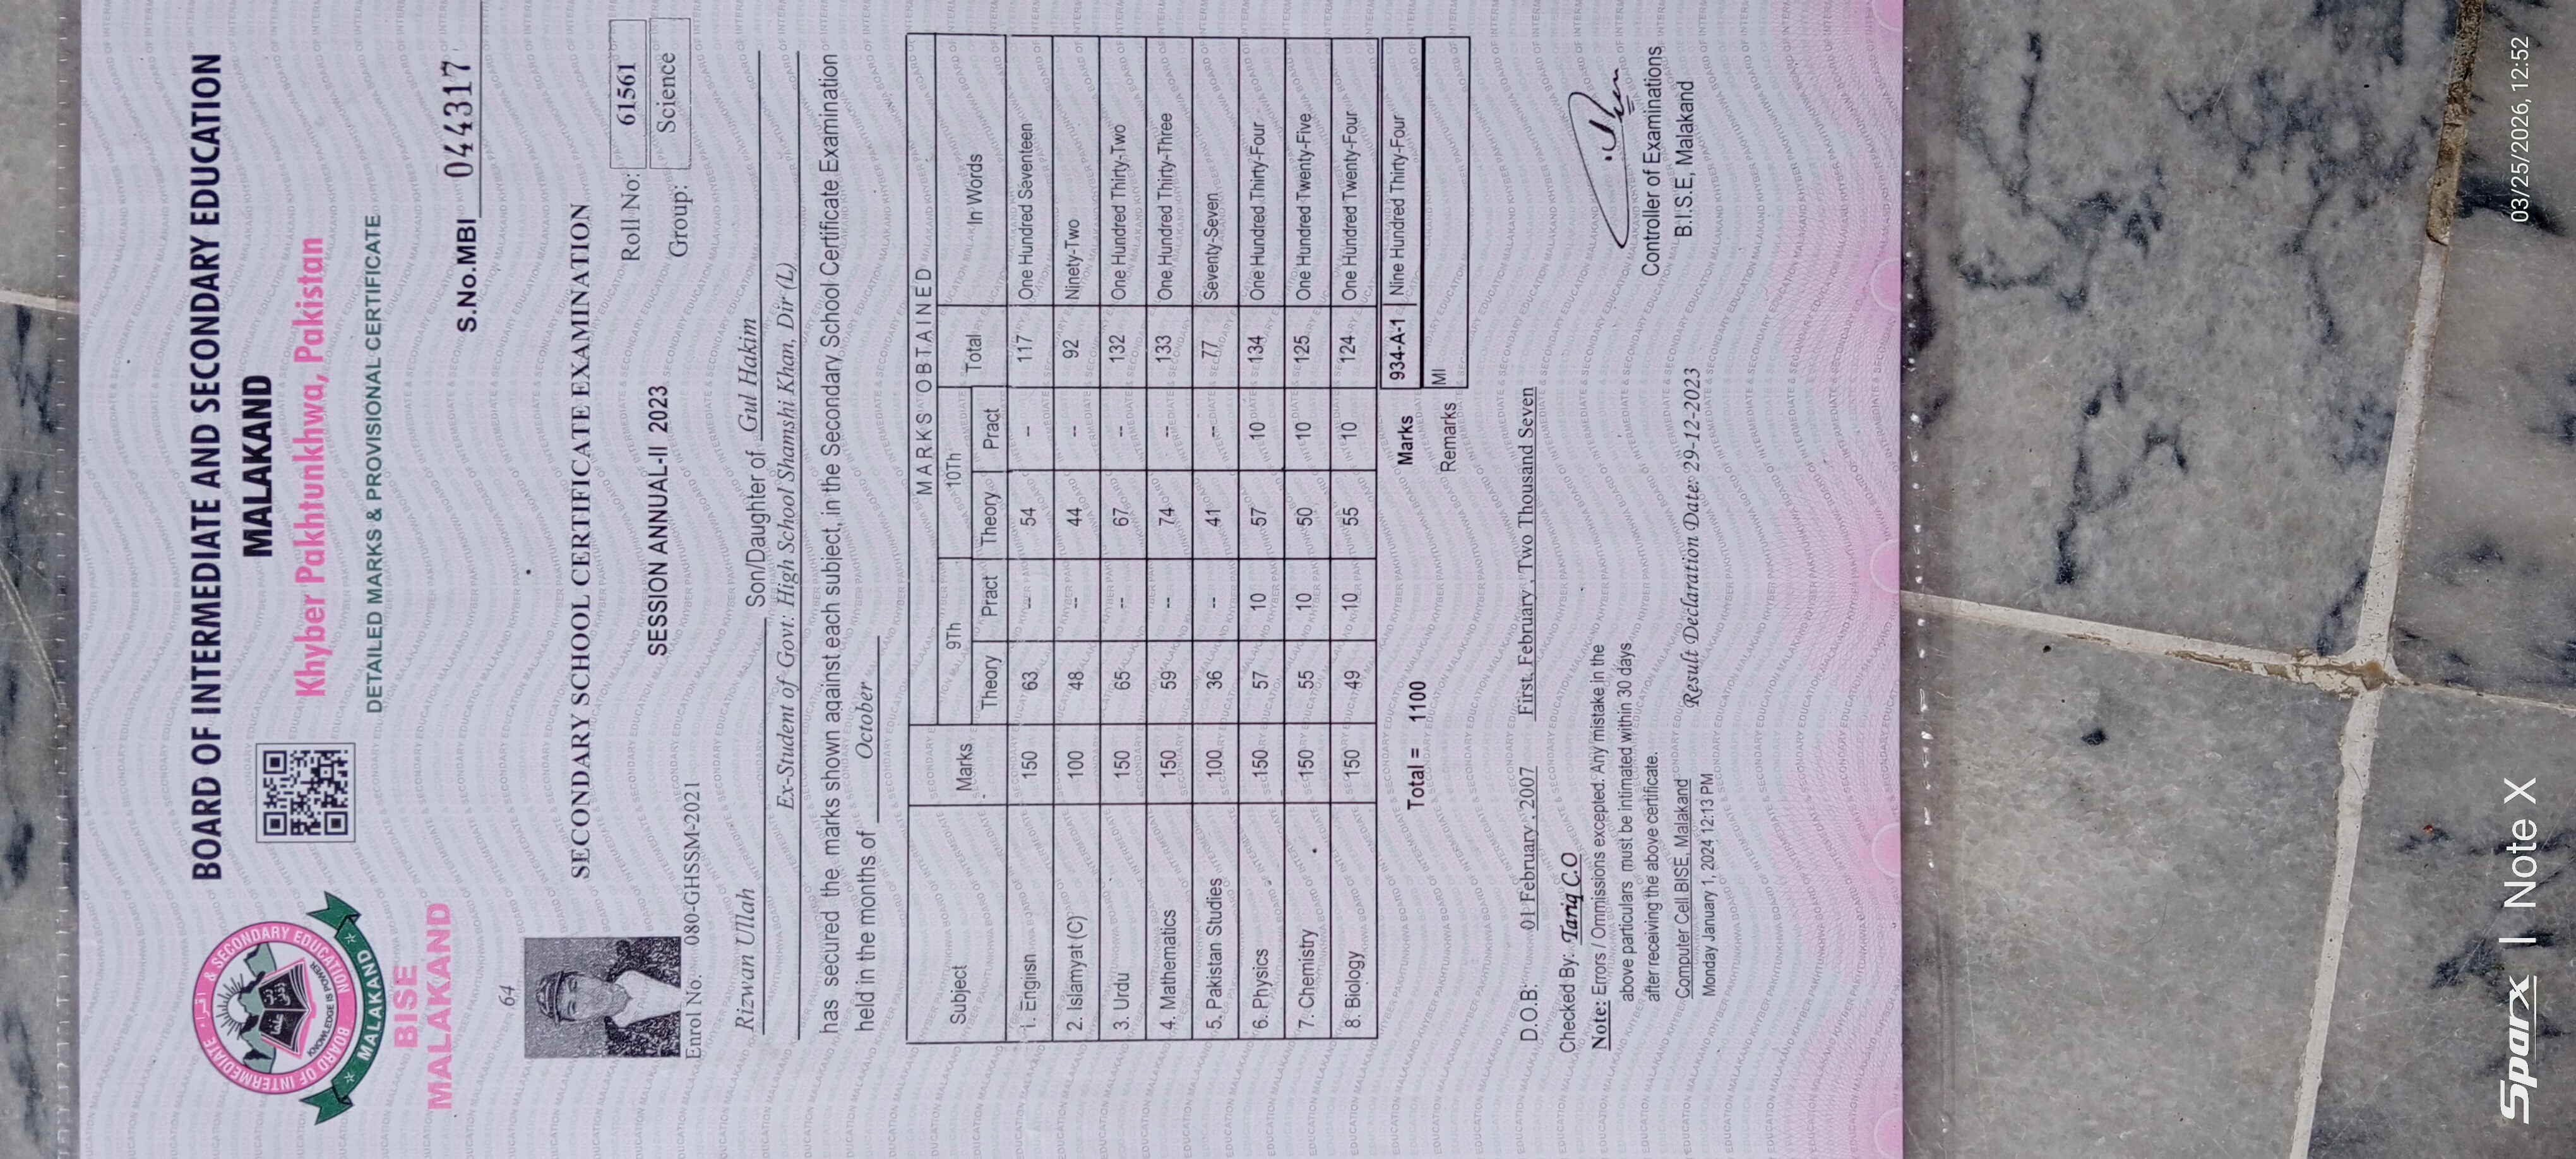 BOARD OF INTERMEDIATE AND SECONDARY EDUCATION
MALAKAND
Khyber Pakhtunkhwa, Pakistan
DETAILED MARKS & PROVISIONAL CERTIFICATE
BOARD OF INTERMEDIATE & SECONDARY EDUCATION
KNOWLEDGE IS POWER
MALAKAND
BISE
MALAKAND
S.No.MBI 044317
64
SECONDARY SCHOOL CERTIFICATE EXAMINATION
Roll No: 61561
SESSION ANNUAL-II 2023
Group: Science
Enrol No. 080-GHSSM-2021
Rizwan Ullah Son/Daughter of Gul Hakim
Ex-Student of Govt: High School Shamshi Khan, Dir (L)
has secured the marks shown against each subject, in the Secondary School Certificate Examination
held in the months of October
MARKS OBTAINED
Subject Marks 9Th 10Th Total In Words
Theory Pract Theory Pract
1. English 150 63 -- 54 -- 117 One Hundred Seventeen
2. Islamyat (C) 100 48 -- 44 -- 92 Ninety-Two
3. Urdu 150 65 -- 67 -- 132 One Hundred Thirty-Two
4. Mathematics 150 59 -- 74 -- 133 One Hundred Thirty-Three
5. Pakistan Studies 100 36 -- 41 -- 77 Seventy-Seven
6. Physics 150 57 10 57 10 134 One Hundred Thirty-Four
7. Chemistry 150 55 10 50 10 125 One Hundred Twenty-Five
8. Biology 150 49 10 55 10 124 One Hundred Twenty-Four
Total = 1100 Marks 934-A-1 Nine Hundred Thirty-Four
Remarks MI
D.O.B: 01 February, 2007 First, February, Two Thousand Seven
Checked By: Tariq C.O
Note: Errors / Ommissions excepted. Any mistake in the
above particulars must be intimated within 30 days
after receiving the above certificate.
Controller of Examinations
B.I.S.E, Malakand
Computer Cell BISE, Malakand
Monday January 1, 2024 12:13 PM
Result Declaration Date: 29-12-2023
Sparx | Note X
03/25/2026, 12:52